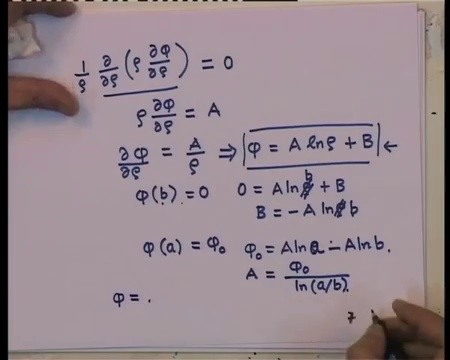 1/ρ ∂/∂ρ (ρ ∂φ/∂ρ) = 0
ρ ∂φ/∂ρ = A
∂φ/∂ρ = A/ρ ⇒ |φ = A lnρ + B| ←
φ(b) = 0   0 = A ln b + B
B = -A ln b
φ(a) = φ₀   φ₀ = A ln a - A ln b.
A = φ₀/ln(a/b).
φ = .
7